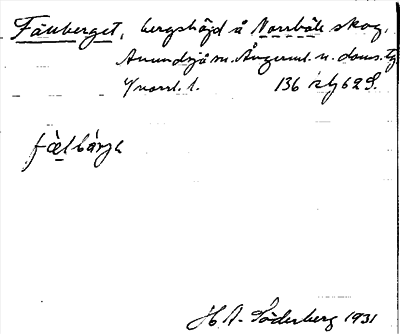 Fälberget, bergshöjd å Norrböle skog,
Anundsjö sn. Ångerml. n. doms.
Y norrl. l. 136
fälbärje
H. A. Söderberg 1931